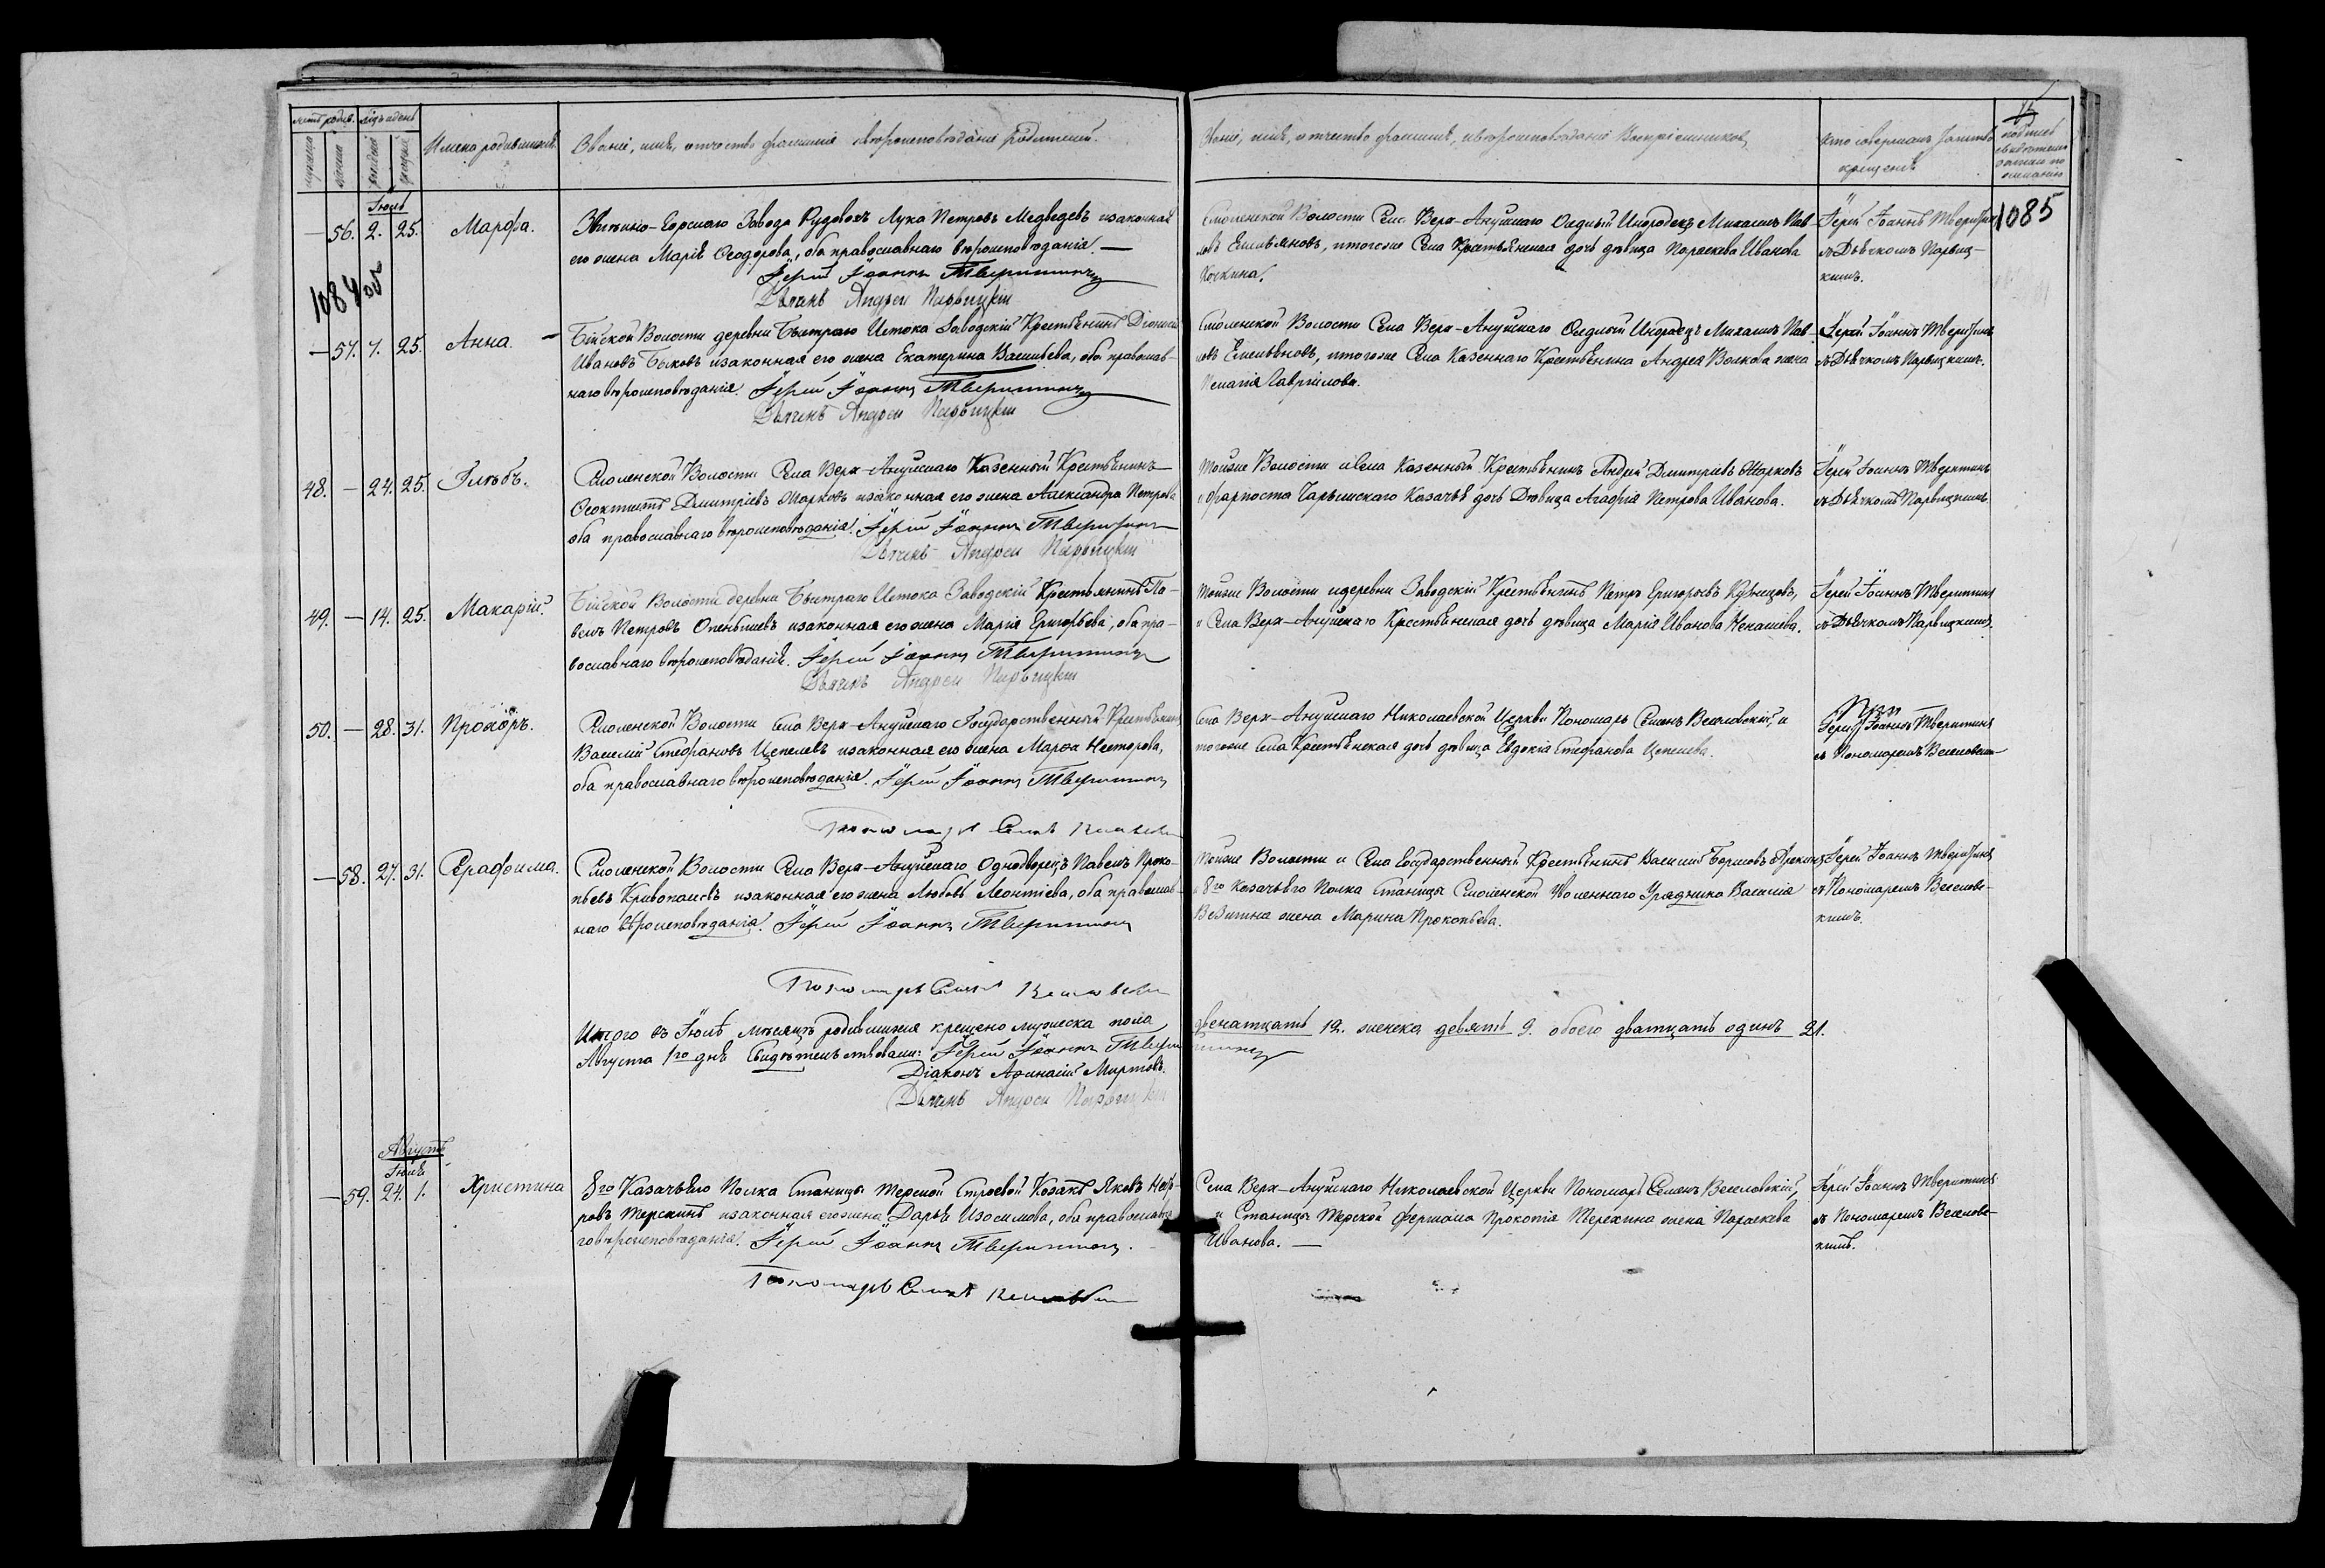 счетъ родив. мѣсяцъ и день
Имена родившихся.
Званіе, имя, отчество, фамилія и вѣроисповѣданіе родителей.
Званіе, имя, отчество, фамилія, и вѣроисповѣданіе воспріемниковъ.
Кто совершалъ таинство
крещенія
1085
Іюль
— 56. 2. 25. Марфа.
Лука Петровъ Медведевъ и законная
его жена Марія Ѳеодорова, оба православнаго вѣроисповѣданія. —
Іерей Іоаннъ Тверитинъ
Дьячекъ Андрей
Смоленской Волости Села Верх-Ануйскаго Оседлый Инородецъ Михаилъ Пав-
ловъ Емельяновъ, и тогоже Села Крестьянская дочь дѣвица Параскева Иванова
Іерей Іоаннъ Тверитинъ
съ Дьячкомъ
кимъ.
1084 об
— 57. 7. 25. Анна.
Бійской Волости деревни Быстраго Истока Заводскій Крестьянинъ Діонисій
Ивановъ Быковъ и законная его жена Екатерина Васильева, оба православ-
наго вѣроисповѣданія. Іерей Іоаннъ Тверитинъ
Дьячекъ Андрей
Смоленской Волости Села Верх-Ануйскаго Оседлый Инородецъ Михаилъ Пав-
ловъ Емельяновъ, и тогоже Села Казеннаго Крестьянина Андрея Волкова жена
Пелагія Гаврилова.
Іерей Іоаннъ Тверитинъ
съ Дьячкомъ
48. — 24. 25. Глѣбъ.
Смоленской Волости Села Верх-Ануйскаго Казенный Крестьянинъ
Ѳеоктистъ Дмитріевъ Марковъ и законная его жена Александра Петрова
оба православнаго вѣроисповѣданія. Іерей Іоаннъ Тверитинъ
Дьячекъ Андрей
Тойже Волости и села Казенный Крестьянинъ Андрей Дмитріевъ Марковъ
и форпоста Чарышскаго Казачья дочь Дѣвица Агафія Петрова Иванова.
Іерей Іоаннъ Тверитинъ
съ Дьячкомъ
49. — 14. 25. Макарій.
Бійской Волости деревни Быстраго Истока Заводскій Крестьянинъ Па-
велъ Петровъ Опенышевъ и законная его жена Марія Григорьева, оба пра-
вославнаго вѣроисповѣданія. Іерей Іоаннъ Тверитинъ
Дьячекъ Андрей
Тойже Волости и деревни Заводскій Крестьянинъ Петръ Григорьевъ Кузнецовъ,
и Села Верх-Ануйскаго Крестьянская дочь дѣвица Марія Иванова Ненашева.
Іерей Іоаннъ Тверитинъ
съ Дьячкомъ
50. — 28. 31. Прохоръ.
Смоленской Волости Села Верх-Ануйскаго Государственный Крестьянинъ
Василій Стефановъ Цепелевъ и законная его жена Марѳа Несторова,
оба православнаго вѣроисповѣданія. Іерей Іоаннъ Тверитинъ
Пономарь Семенъ
Села Верх-Ануйскаго Николаевской Церкви Пономарь Семенъ Веселовскій, и
тогоже Села Крестьянская дочь дѣвица Евдокія Стефанова Цепелева.
Іерей Іоаннъ Тверитинъ
съ Пономаремъ
— 58. 27. 31. Серафима.
Смоленской Волости Села Верх-Ануйскаго Однодворецъ Павелъ Проко-
пьевъ Кривопаловъ и законная его жена Любовь Леонтіева, оба православ-
наго вѣроисповѣданія. Іерей Іоаннъ Тверитинъ
Пономарь Семенъ
Тойже Волости и Села Государственный Крестьянинъ Василій Борисовъ
и 8го Казачьяго Полка Станицы Смоленской Уволеннаго Урядника Василія
жена Марина Прокопьева.
Іерей Іоаннъ Тверитинъ
съ Пономаремъ Веселовс-
кимъ.
Итого въ Іюлѣ мѣсяцѣ родившихся крещено мужеска пола двенатцать 12. женска девять 9. обоего дватцать одинъ 21.
Августа 1го дня Свидѣтельствовали: Іерей Іоаннъ Тверитинъ
Діаконъ Аѳанасій
Дьячекъ Андрей
Августъ
Іюля
— 59. 24. 1. Христина
8го Казачьяго Полка Станицы Терской Строевой Козакъ Яковъ
и законная его жена Дарья Изосимова, оба православна-
го вѣроисповѣданія. Іерей Іоаннъ Тверитинъ.
Пономарь Семенъ
Села Верх-Ануйскаго Николаевской Церкви Пономарь Семенъ Веселовскій,
и Станицы Терской Прокопія Терехина жена Параскева
Иванова. —
Іерей Іоаннъ Тверитинъ
съ Пономаремъ Веселовс-
кимъ.